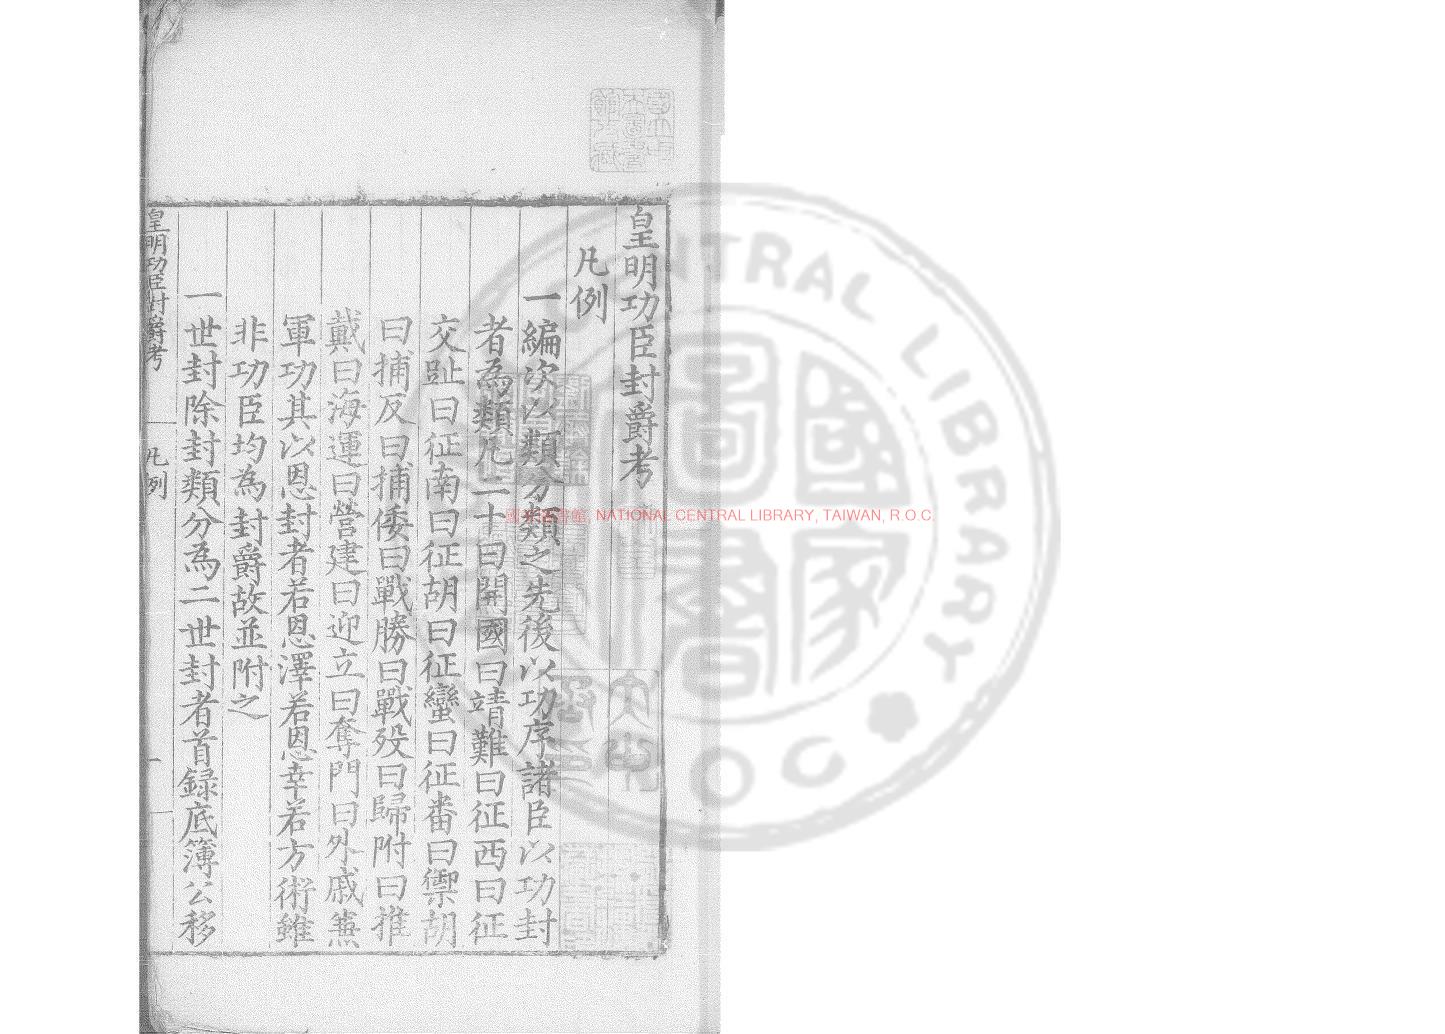 皇明功臣封爵考
凡例
一編次以類分類之先後以功序諸臣以功封
者為類凡二十曰開國曰靖難曰征西曰征
交趾曰征南曰征胡曰征蠻曰征番曰禦胡
曰捕反曰捕倭曰戰勝曰戰歿曰歸附曰推
戴曰海運曰營建曰迎立曰奪門曰外戚蕪
軍功其以恩封者若恩澤若恩幸若方術雖
非功臣均為封爵故並附之
一世封除封類分為二世封者首録底簿公移
皇明功臣封爵考 凡例 一
國家圖書館, NATIONAL CENTRAL LIBRARY, TAIWAN, R.O.C.
CENTRAL LIBRARY
R.O.C.